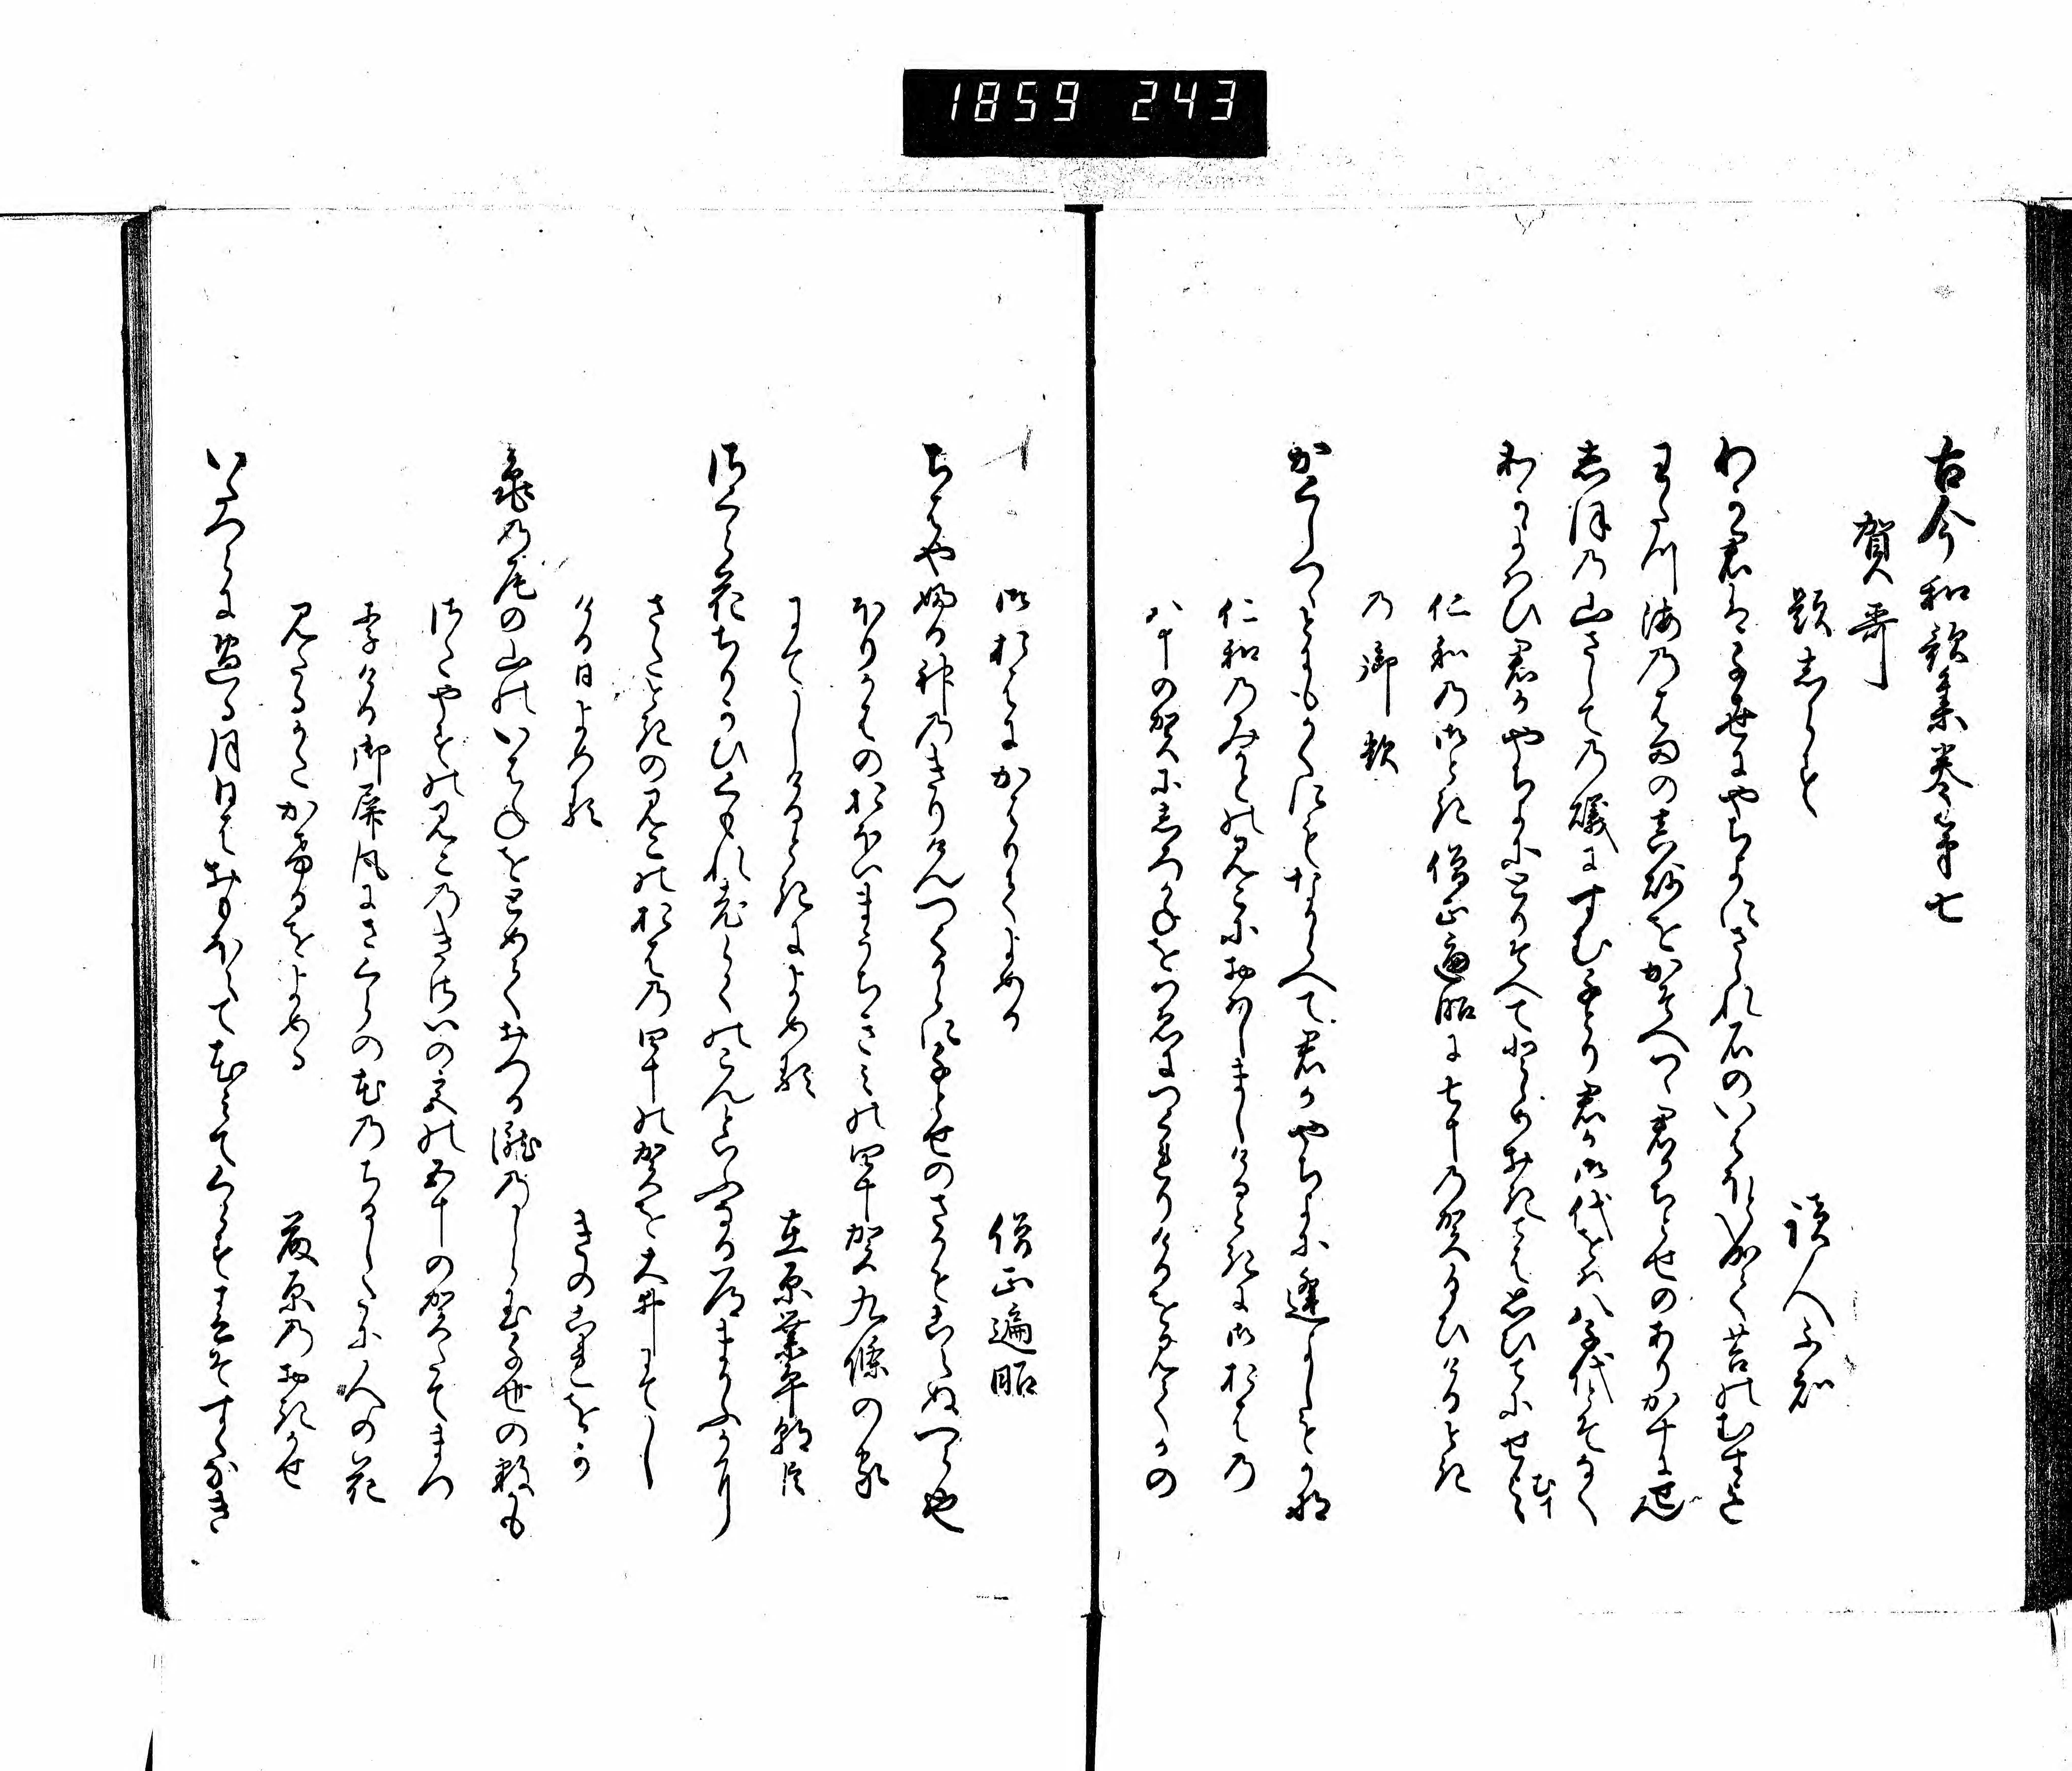 1859 243
古今和歌集巻第七
賀哥
題しらす
読人不知
わか君は千世にやちよにさゝれ石のいはほとなりて苔のむすまて
わたつ海のはまの真砂をかそへつゝ君かちとせのありかすにせん
志ほの山さしての磯にすむ千とり君か御代をは八千代とそなく
わかよはひ君かやちよにとりそへてとゝめおきてはおもひてにせよ
む
仁和の御とき僧正遍昭に七十の賀給ひける時
の御歌
かくしつゝとにもかくにもなからへて君かやちよに逢よしもかな
仁和のみかとのみこにおはしましける時に御をはの
八十の賀にしろかねをつえにつくれりけるを見てかの
御をはにかはりてよめる
僧正遍昭
ちはやふる神のきりけんつくからに千とせのさかもこえぬへら也
ほりかはのおほいまうちきみの四十賀九條の家
にてしける時によめる
在原業平朝臣
さくら花ちりかひくもれ老らくのこんといふなる道まかふかに
さたときのみこのをはの四十の賀を大井にてし
ける日よめる
きのこれをか
亀の尾の山のいはねをとめておつる瀧のしら玉千世の数かも
さたやすのみこのきさいの宮の五十の賀たてまつ
りける御屏風にさくらの花のちるしたに人の花
見たるかたかけるをよめる
藤原のおきかせ
いたつらに過る月日はおもほえて花みてくらす春そすくなき